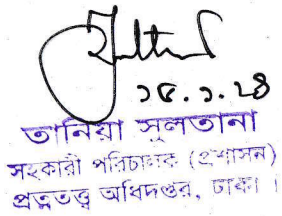 ১৫.১.২৪
তানিয়া সুলতানা
সহকারী পরিচালক (প্রশাসন)
প্রত্নতত্ত্ব অধিদপ্তর, ঢাকা।